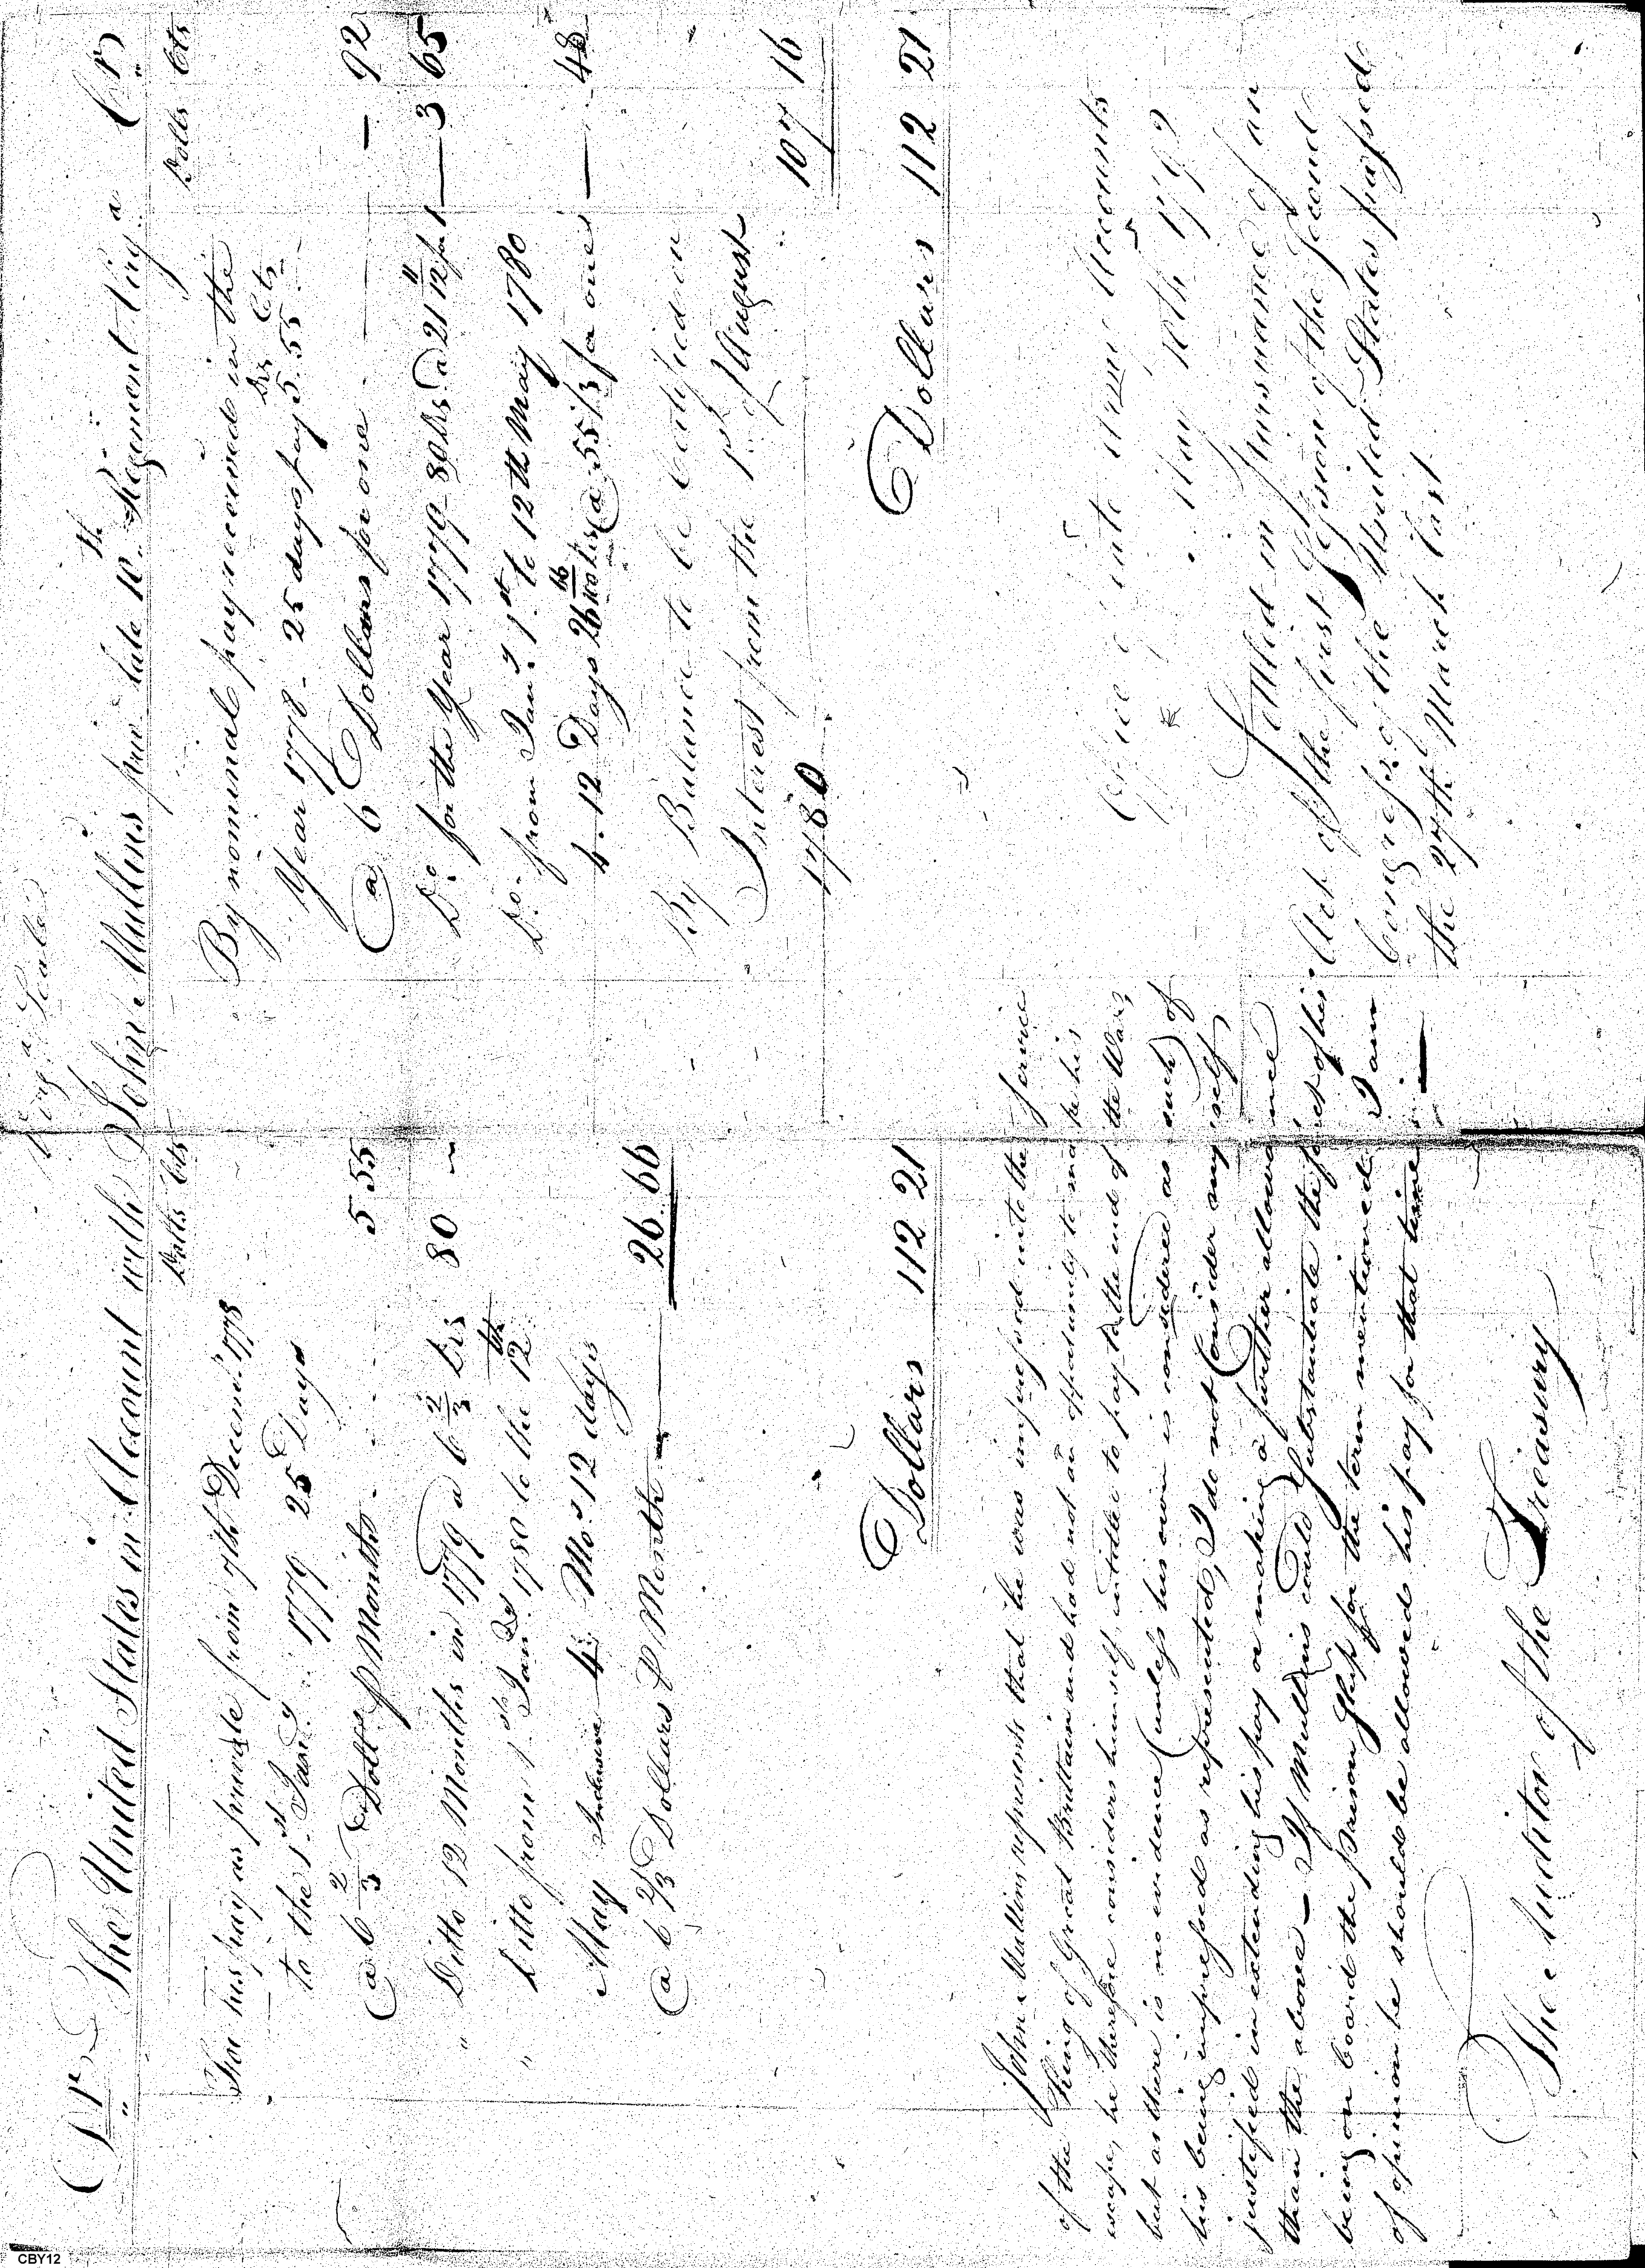 Virg.a Scale
Dr The United States in Account with John Mullins priv. late 10th Regiment Virg.a Cr
Dolls Cts
For his pay as private from 7th Decem.r 1778
to the 1st Jan.y 1779 25 Days
@ 6 2/3 Dolls p Month 5 55
" Ditto 12 Months in 1779 a 6 2/3 Drs 80 -
" Ditto from 1st Jan.y 1780 to the 12th
May Inclusive 4 Mo.s 12 days
@ 6 2/3 Dollars P Month 26 66
Dollars 112 21
John Mullins represents that he was impressed into the Service
of the King of Great Brittain and had not an opportunity to make his
escape, he therefore considers himself intitle to pay to the end of the War;
but as there is no evidence (unless his own is considered as such) of
his being impressed as represented, I do not Consider myself
justified in extending his pay or making a further allowance
than the above - If Mullins could Substantiate the fact of his
being on board the prison Ship for the term mentioned I am
of opinion he should be allowed his pay for that time -
The Auditor of the Treasury
Dolls Cts
By nominal pay received in the
Year 1778 - 25 days pay Drs 5. Cts 55
@ 6 Dollars for one - 92
Do. for the Year 1779 - 80 Drs @ 21 11/12 for 1 3 65
Do. from Jan.y 1st to 12th May 1780
4. 12 Days 26 66/100 Drs @ 55 1/3 for one - 48
By Balance to be Certified on
Interest from the 1st of August
1780 107 16
Dollars 112 21
Office Accounts
May 10th 179
Settled in pursuance of an
Act of the first Session of the Second
Congress of the United States passed
the 27th March last
CBY12